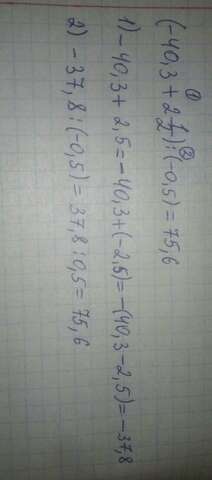 (-40,3 + 2 1/2) : (-0,5) = 75,6
1) -40,3 + 2,5 = -40,3 + (-2,5) = -(40,3 - 2,5) = -37,8
2) -37,8 : (-0,5) = 37,8 : 0,5 = 75,6